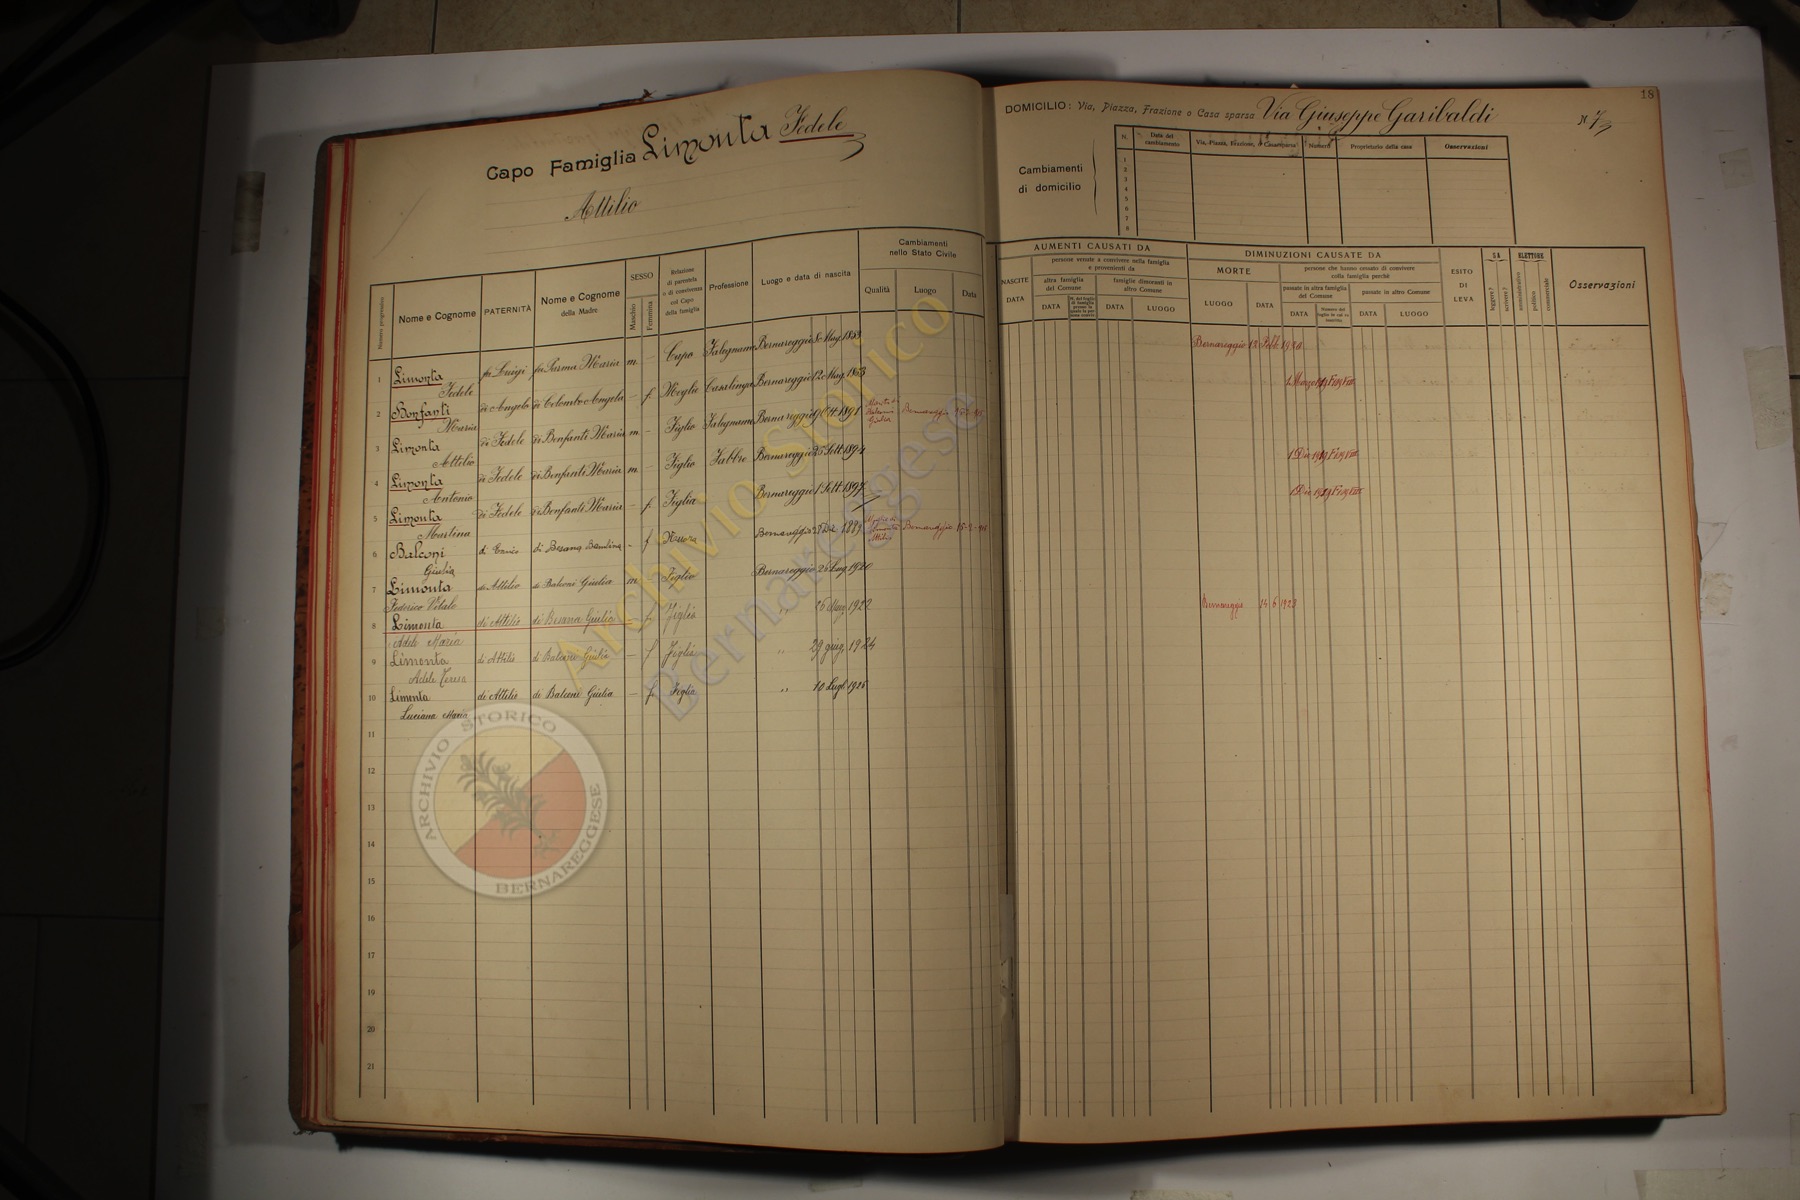 Capo Famiglia Limonta Fedele
Attilio
Numero progressivo
Nome e Cognome
PATERNITÀ
Nome e Cognome della Madre
SESSO
Maschio
Femmina
Relazione di parentela o di convivenza col Capo della famiglia
Professione
Luogo e data di nascita
Cambiamenti nello Stato Civile
Qualità
Luogo
Data
1 Limonta Fedele fu Luigi fu Parma Maria m - Capo Falegname Bernareggio 8 Mag. 1853
2 Bonfanti Maria di Angelo di Colombo Angela - f Moglie Casalinga Bernareggio 12 Mag. 1853
3 Limonta Attilio di Fedele di Bonfanti Maria m - Figlio Falegname Bernareggio 9 Ott. 1891 Marito di Balconi Giulia Bernareggio
4 Limonta Antonio di Fedele di Bonfanti Maria m - Figlio Fabbro Bernareggio 25 Sett. 1894
5 Limonta Martina di Fedele di Bonfanti Maria - f Figlia Bernareggio 1 Sett. 1897
6 Balconi Giulia di Besana - f Nuora Bernareggio Limonta Attilio Bernareggio
7 Limonta Federico Vitale di Attilio di Balconi Giulia m Figlio Bernareggio 26 1920
8 Limonta Adele Maria di Attilio di Besana Giulia - f Figlia " 26 Mag. 1922
9 Limonta Adele Teresa di Attilio di Balconi Giulia - f Figlia " 29 giug. 1924
10 Limonta Luciana Maria di Attilio di Balconi Giulia - f Figlia " 10 Lugl. 1926
11
12
13
14
15
16
17
18
19
20
21
18
DOMICILIO: Via, Piazza, Frazione o Casa sparsa Via Giuseppe Garibaldi N. 73
Cambiamenti di domicilio
N.
Data del cambiamento
Via, Piazza, Frazione, o Casa sparsa
Numero
Proprietario della casa
Osservazioni
1
2
3
4
5
6
7
8
AUMENTI CAUSATI DA
NASCITE
DATA
persone venute a convivere nella famiglia e provenienti da
altra famiglia del Comune
DATA
famiglie dimoranti in altro Comune
DATA
LUOGO
DIMINUZIONI CAUSATE DA
MORTE
LUOGO
DATA
persone che hanno cessato di convivere colla famiglia perchè
passate in altra famiglia del Comune
DATA
passate in altro Comune
DATA
LUOGO
ESITO DI LEVA
SA
leggere?
scrivere?
ELETTORE
amministrativo
politico
commerciale
Osservazioni
Bernareggio 13 Febb. 1930
Bernareggio 14 6 1923
Archivio Storico
Bernareggese
ARCHIVIO STORICO
BERNAREGGESE